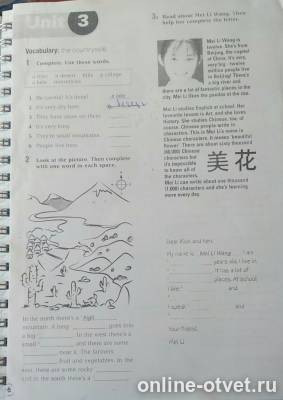 Unit 3
Vocabulary: the countryside
1 Complete. Use these words.
desert hills village
It's very dry here.
They have snow on them.
It's very long.
They're small mountains.
People live here.
2 Look at the picture. Then complete
with one word in each space.
In the north there's a high
mountain. A long goes into
a big In the west there's a
small and there are some
near it. The farmers
fruit and vegetables. In the
east there are some rocky
and in the south there's a
6
3 Read about Mei Li Wang. Then
help her complete the letter.
Mei Li Wang is
twelve. She's from
Beijing, the capital
of China. It's very,
very big - twelve
million people live
in Beijing! There's
a big river and
there are a lot of fantastic places in the
city. Mei Li likes the pandas at the zoo.
Mei Li studies English at school. Her
favourite lessons is Art, and she loves
History. She studies Chinese, too, of
course. Chinese people write in
characters. This is Mei Li's name in
Chinese characters. It means 'beautiful
flower'. There are about sixty thousand
(60,000) Chinese
characters but
it's impossible
to know all of
the characters.
Mei Li can write about one thousand
(1,000) characters and she's learning
more every day.
美花
Dear Kish and Ken,
My name is Mei Li Wang. I am
years old. I live in
It has a lot of
places. At school
I like and
I and
Your friend,
Mei Li
online-otvet.ru